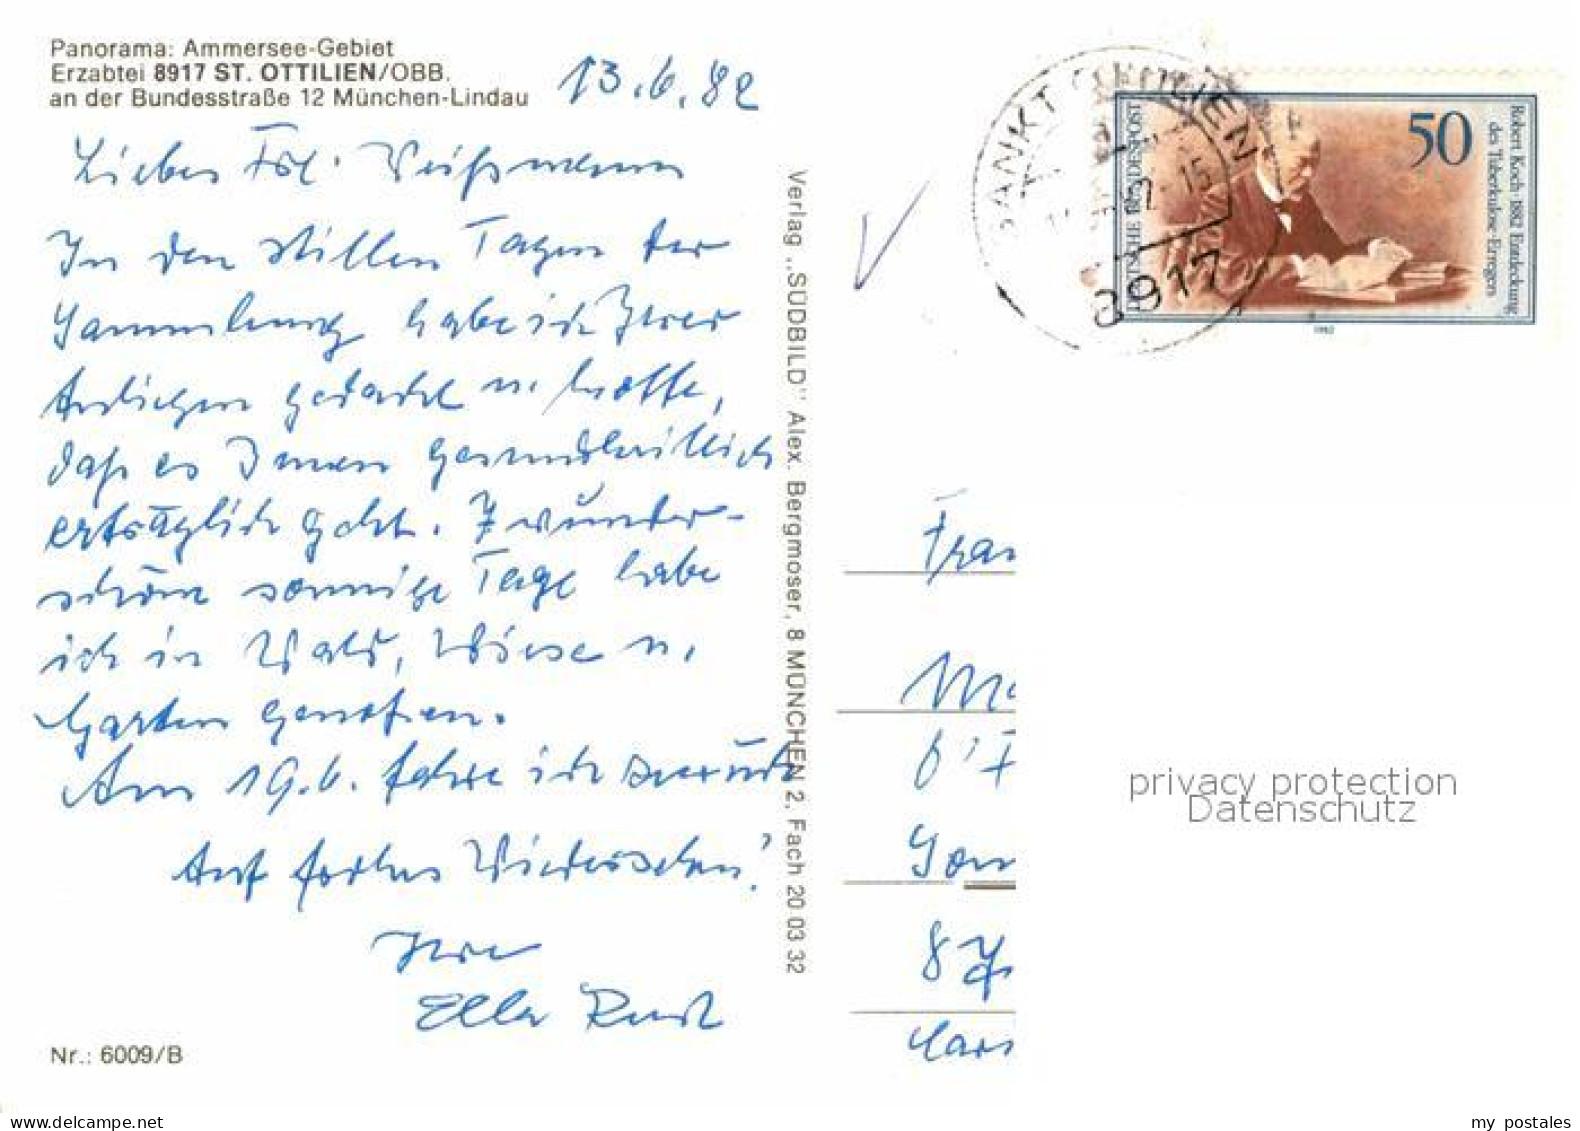 Panorama: Ammersee-Gebiet
Erzabtei 8917 ST. OTTILIEN/OBB.
an der Bundesstraße 12 München-Lindau
13.6.82
Liebes Frl. Weißmann
In den stillen Tagen der
Sammlung habe ich Ihrer
gedacht u. hoffe,
daß es Ihnen gesundheitlich
erträglich geht. 7 wunder-
schöne sonnige Tage habe
ich in Wald, Wiese u.
Garten genossen.
Am 19.6. fahre ich zurück
Auf frohes Wiedersehen!
Ihre
Ella
Nr.: 6009/B
Verlag „SÜDBILD" Alex. Bergmoser, 8 MÜNCHEN 2, Fach 20 03 32
SANKT OTTILIEN
8917
DEUTSCHE BUNDESPOST
50
Robert Koch · 1882 Entdeckung
des Tuberkulose-Erregers
1982
privacy protection
Datenschutz
www.delcampe.net
my postales